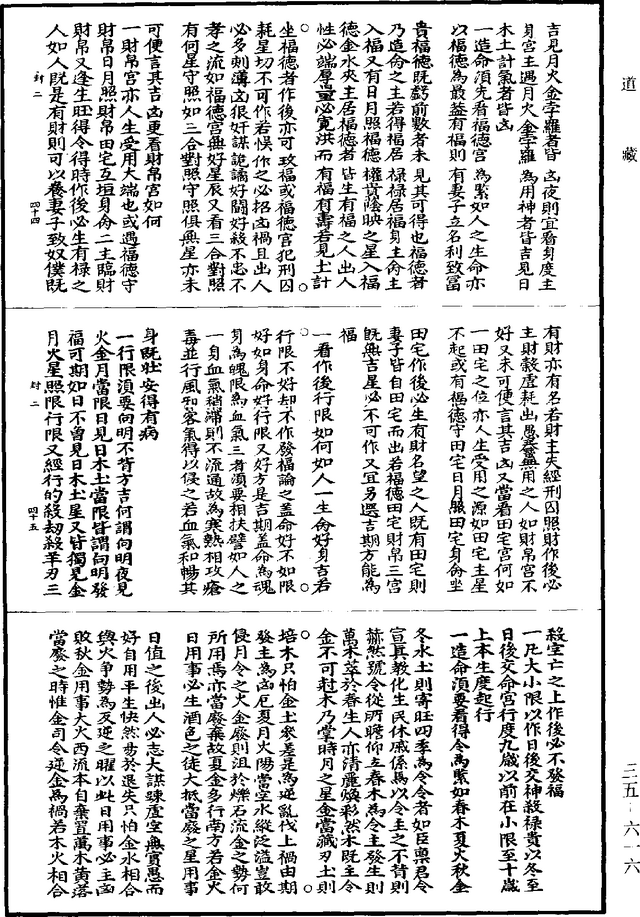 道藏
吉見月火金孛羅者皆凶夜則宜看身度主
身宮主遇月火金孛羅為用神者皆吉見日
木土計氣者皆凶
一造命須先看福德宮為緊如人之生命亦
以福德為最益有福則有妻子立名利致冨
貴福德既虧前數者未見其可得也福德者
乃造命之主若得福居祿祿居福身主命主
入福又有日月照福德權貴陰映之星入福
德金水夾主居福德者皆生有福之人出人
性必端厚量必寬洪而有福有壽若見土計
坐福德者作後亦可攻福或福德宮犯刑囚
耗星切不可作若悮作之必招凶禍且出人
必多刺薄凶很奸謀詭譎好鬪好殺不忠不
孝之流如福德宮無好星辰又看三合對照
有何星守照如三合對照守照俱無星亦未
可便言其吉凶更看財帛宮如何
一財帛宮亦人生受用大端也或遇福德守
財帛日月照財帛田宅互垣身命二主臨財
財帛又逢生旺得令得時作後必生有祿之
人如人既是有財則可以養妻子致奴僕既
封二
四十四
有財亦有名若財主失經刑囚照財作後必
主財穀虛耗出愚蠢無用之人如財帛宮不
好又未可便言其吉凶又當看田宅宮何如
一田宅之位亦人生受用之源如田宅主星
不起或有福德守田宅日月照田宅身命坐
田宅作後必生有財名望之人既有田宅則
妻子皆自田宅而出若福德田宅財帛三宮
既無吉星必不可作又宜另選吉期方能為
福
一看作後行限如何如人一生命好身吉若
行限不好却不作發福論之蓋命好不如限
好如身命好行限又好方是吉期蓋命為魂
身為魄限為血氣三者須要相扶譬如人之
一身血氣稍滯則不流通故為寒熱相攻瘡
毒並行風和客氣得以侵之若血氣和暢其
身既壯安得有病
一行限須要向明不背方吉何謂向明夜見
火金月當限日見日木土當限皆謂向明發
福可期如日不曾見日木土星又皆獨見金
月火星照限行限又經行的殺劫殺羊刃三
封二
四十五
殺空亡之上作後必不發福
一凡大小限以作日後交神殺祿貴以冬至
日後交命宮行度九歲以前在小限至十歲
上本生度起行
一造命須要看得令為緊如春木夏火秋金
冬水土則寄旺四季為令令者如臣稟君令
宣其教化生民休戚係焉以令主之不背則
赫然號令從所瞻仰立春木為令主發生則
萬木萃於春生人亦清麗煥彩然木既主令
金不可尅木乃掌時月之星金當藏刃土則
培木只怕金土參差是為逆亂伐上禍由期
發主為凶厄夏月火陽當空水縱泛溢豈敢
侵月令之火金廢則沮於爍石流金之勢何
所用焉亦當廢棄故夏金多行南方若金火
日用事必生酒色之徒大抵當廢之星用事
日值之後出人必志大謀踈虛空無實愚而
好自用平生怏然昜於退失只怕金水相合
與火爭勢為反逆之曜以此日用事必主凶
敗秋金用事大火西流本自棄置萬木黃落
當廢之時惟金司令逆金為禍若木火相合
三五—六一六